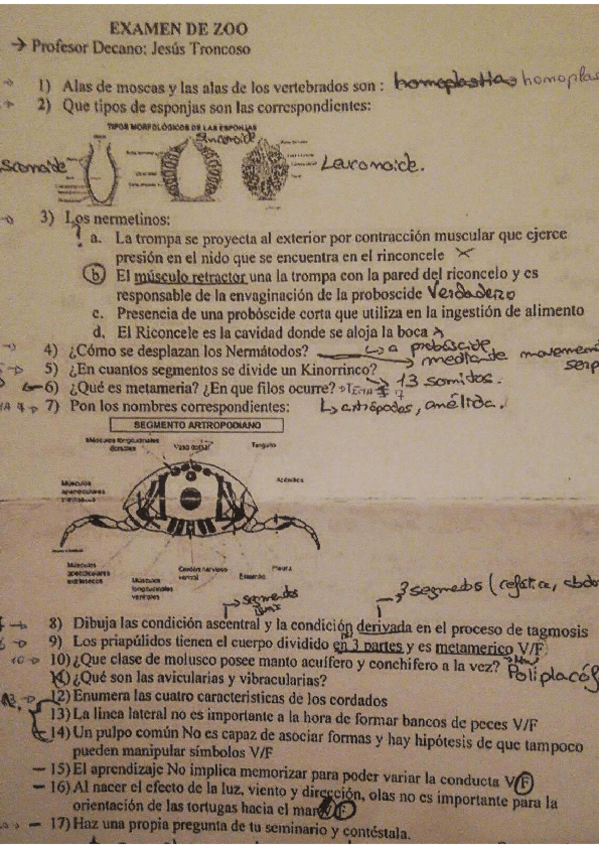 EXAMEN DE ZOO
→ Profesor Decano: Jesús Troncoso
1) Alas de moscas y las alas de los vertebrados son : homoplas
2) Que tipos de esponjas son las correspondientes:
TIPOS MORFOLÓGICOS DE LAS ESPONJAS
Siconoide
Asconoide
Leuconoide.
3) Los nermetinos:
a. La trompa se proyecta al exterior por contracción muscular que ejerce
presión en el nido que se encuentra en el rinconcele
b El músculo retractor una la trompa con la pared del riconcelo y es
responsable de la envaginación de la proboscide Verdadero
c. Presencia de una probóscide corta que utiliza en la ingestión de alimento
d. El Riconcele es la cavidad donde se aloja la boca
a probóscide
4) ¿Cómo se desplazan los Nermátodos? → mediante movemen
serp
5) ¿En cuantos segmentos se divide un Kinorrinco? → 13 somitos.
6) ¿Qué es metameria? ¿En que filos ocurre?
7) Pon los nombres correspondientes: artrópodos, anélida.
SEGMENTO ARTROPODIANO
Músculos longitudinales
dorsales
Vaso dorsal
Terguito
Músculos
apendiculares
Apéndice
Músculos
apendiculares
extrínsecos
Músculos
longitudinales
ventrales
Cordón nervioso
ventral
Esternito
Pleura
segmentos
3 segmentos (cefálica, abdo
8) Dibuja las condición ascentral y la condición derivada en el proceso de tagmosis
9) Los priapúlidos tienen el cuerpo dividido en 3 partes y es metamerico V/F
10) ¿Que clase de molusco posee manto acuífero y conchifero a la vez?
Poliplacóf
11) ¿Qué son las avicularias y vibracularias?
12) Enumera las cuatro caracteristicas de los cordados
13) La linea lateral no es importante a la hora de formar bancos de peces V/F
14) Un pulpo común No es capaz de asociar formas y hay hipótesis de que tampoco
pueden manipular símbolos V/F
15) El aprendizaje No implica memorizar para poder variar la conducta V/F
16) Al nacer el efecto de la luz, viento y dirección, olas no es importante para la
orientación de las tortugas hacia el mar V/F
17) Haz una propia pregunta de tu seminario y contéstala.